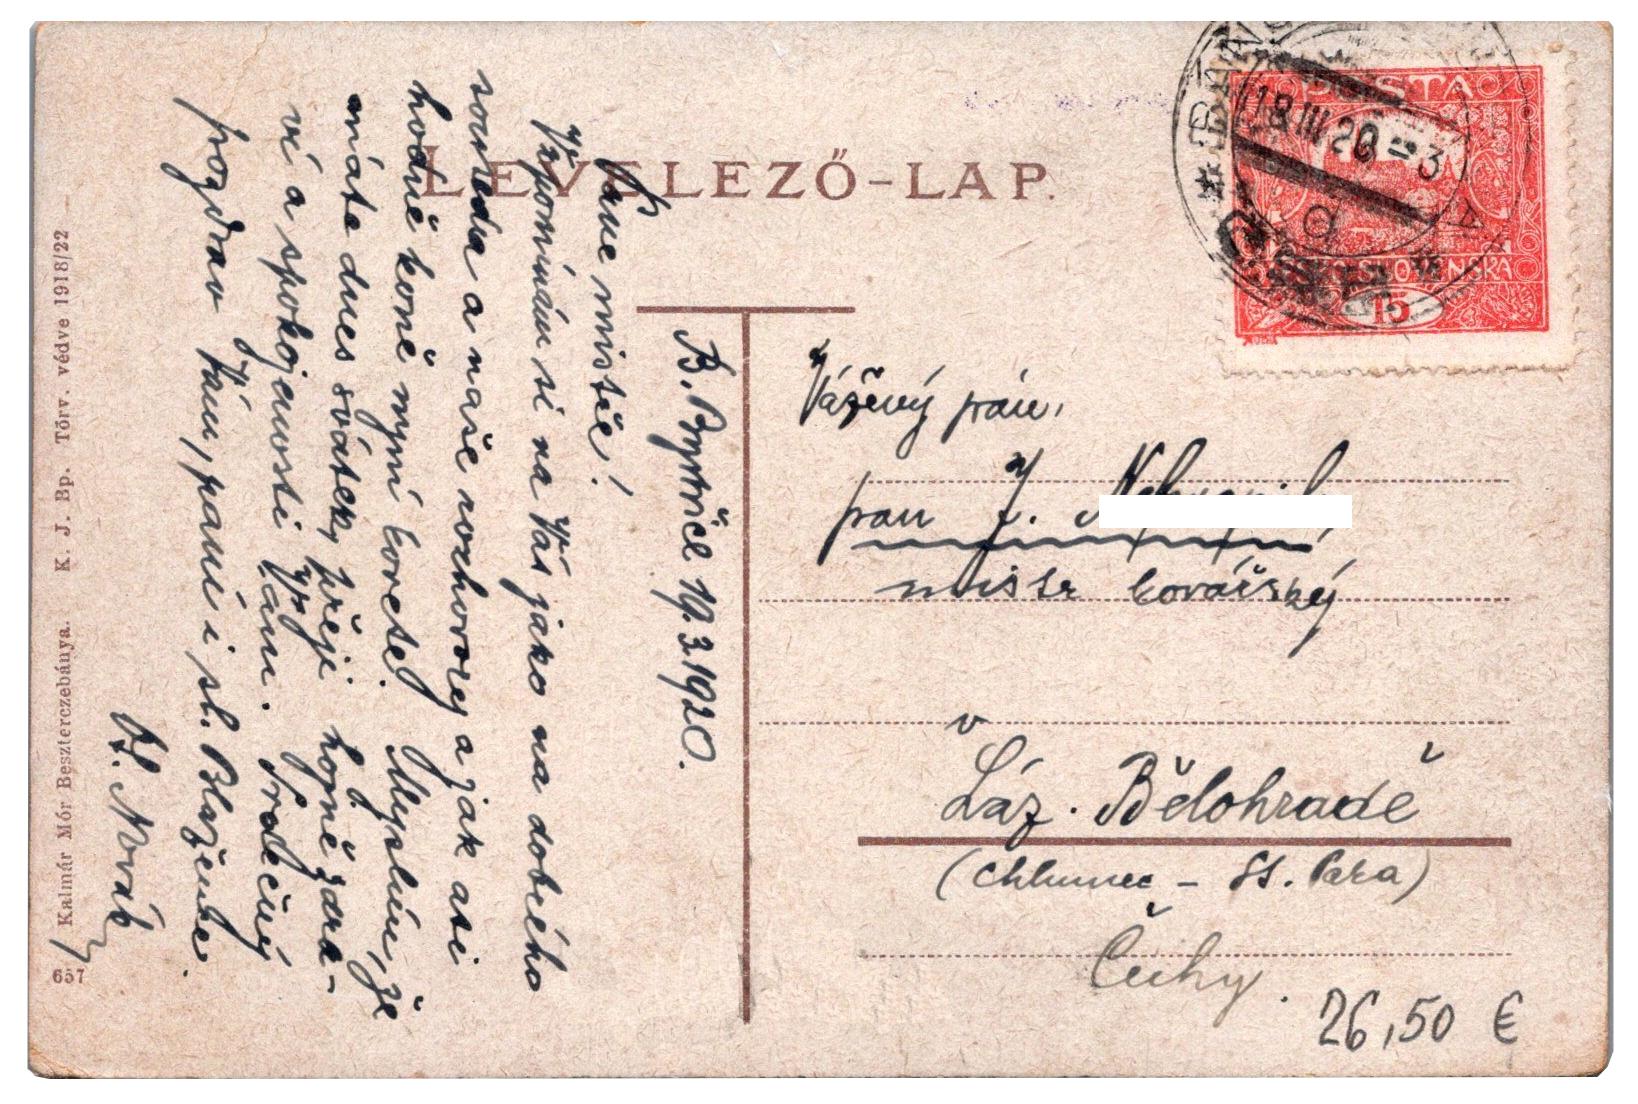 LEVELEZŐ-LAP.
B. Bystrice 19.3.1920.
Pane mistře!
Vzpomínám si na Vás jako na dobrého
souseda a naše rozhovory a jak asi
hodně koně nyní
máte dnes svátek, přeji hojně zdra-
ví a spokojenosti Vám. Srdečný
pozdrav Vám, paní i sl. Blaženke.
Novák
Vážený pán,
pan J.
mistr kovářský
v
Láz. Bělohradě
(Chlumec - St. Paka)
Čechy.
26,50 €
POŠTA
ČESKO-SLOVENSKÁ
15
18.III.20-3
a
Kalmár Mór Beszterczebánya. K. J. Bp. Törv. védve 1918/22
657